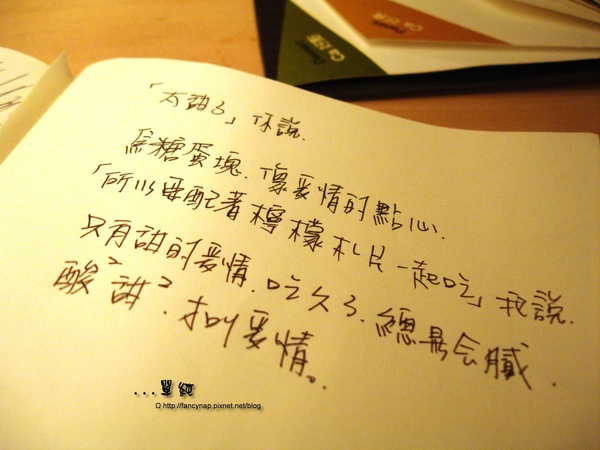 「太甜了」你說.
烏糖蛋塊.像愛情的點心.
「所以要配著檸檬札片一起吃」我說.
只有甜的愛情.吃久了.總是会膩.
酸²甜².才叫愛情。
...單純
http://fancynap.pixnet.net/blog